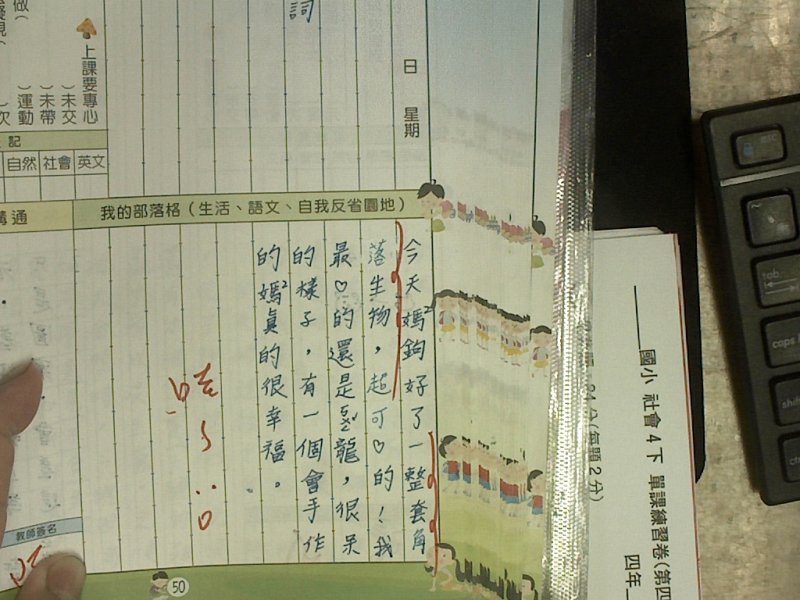 詞
日 星期
上課要專心
)未交
)未帶
)運動
次
記
英文
社會
自然
我的部落格(生活、語文、自我反省園地)
溝通
今天媽²鉤好了一整套角
落生物,超可♡的!我
最♡的還是恐龍,很呆
的樣子,有一個會手作
的媽²真的很幸福。
教師簽名
50
國小 社會 4下 單課練習卷(第四
四年
(每題2分)
tab
caps
shift